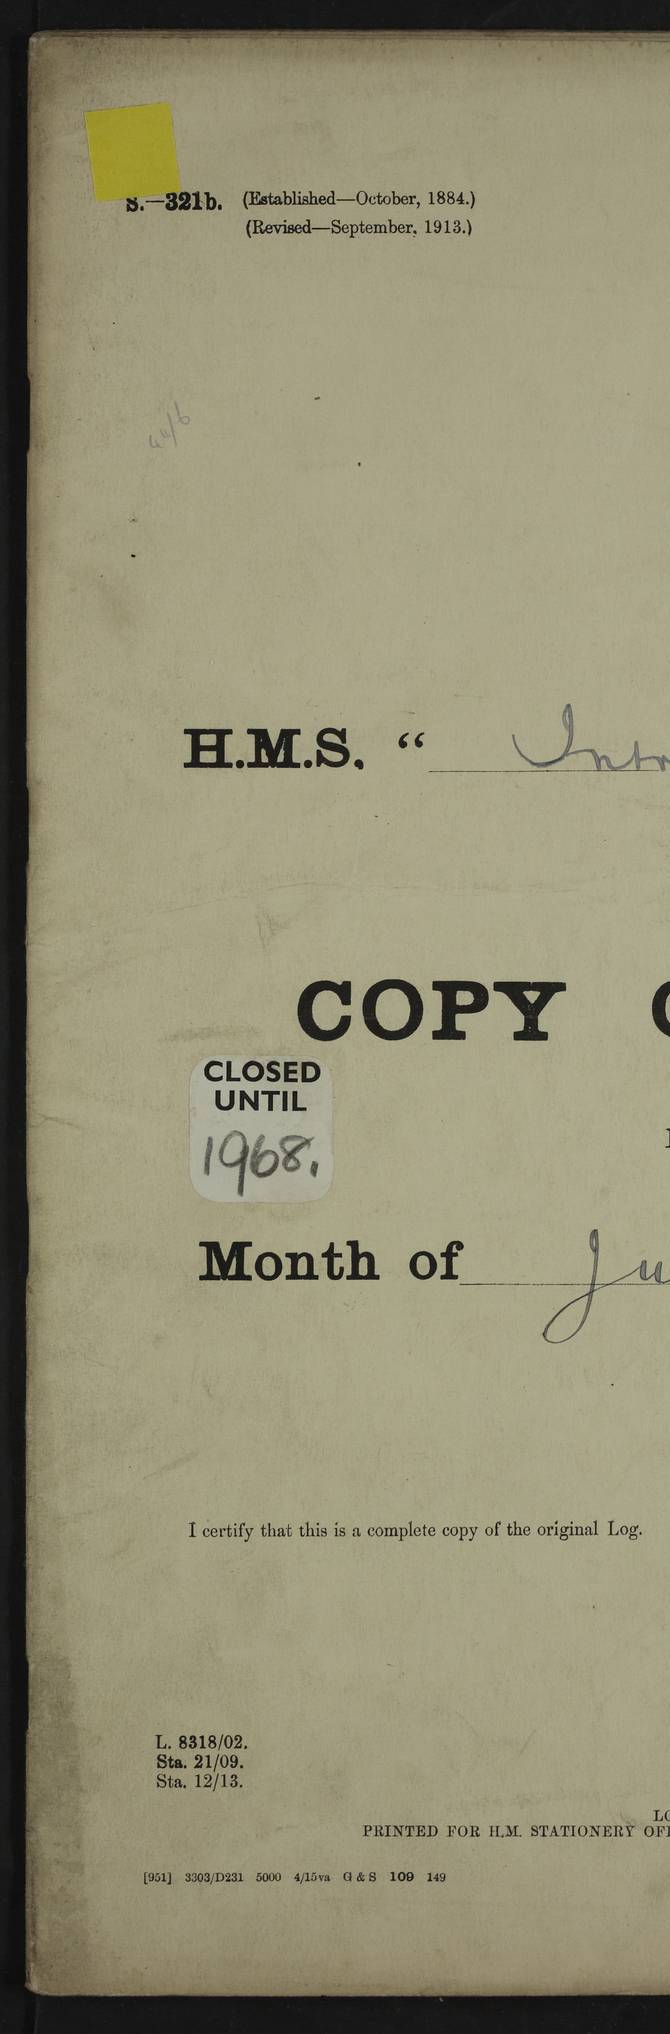 S.—321b. (Established—October, 1884.)
(Revised—September, 1913.)
H.M.S. “ Intr
COPY
CLOSED
UNTIL
1968.
Month of Ju
I certify that this is a complete copy of the original Log.
L. 8318/02.
Sta. 21/09.
Sta. 12/13.
LO
PRINTED FOR H.M. STATIONERY OF
[951] 3303/D231 5000 4/15va G & S 109 149